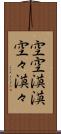 空空漠漠
空々漠々